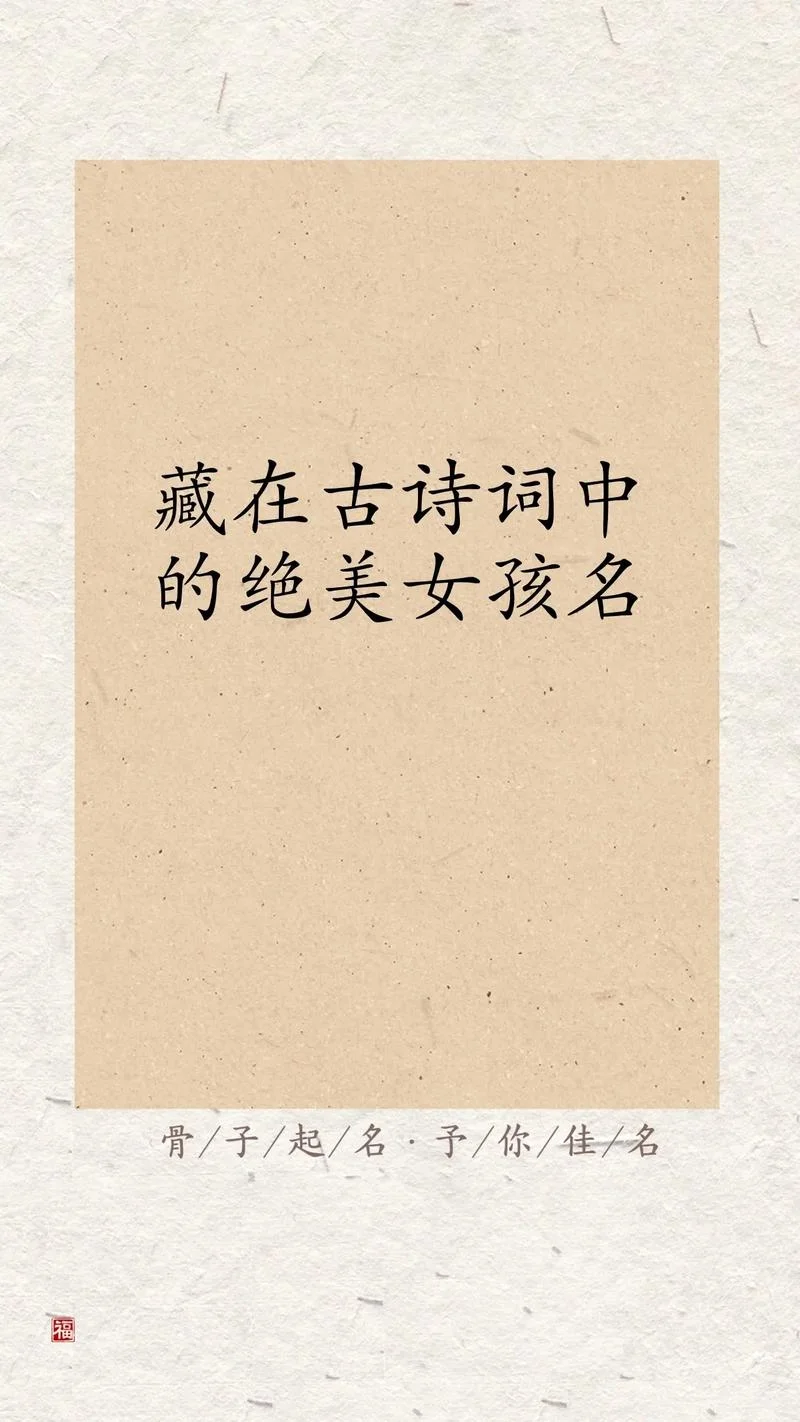 藏在古诗词中
的绝美女孩名
骨/子/起/名·予/你/佳/名
福